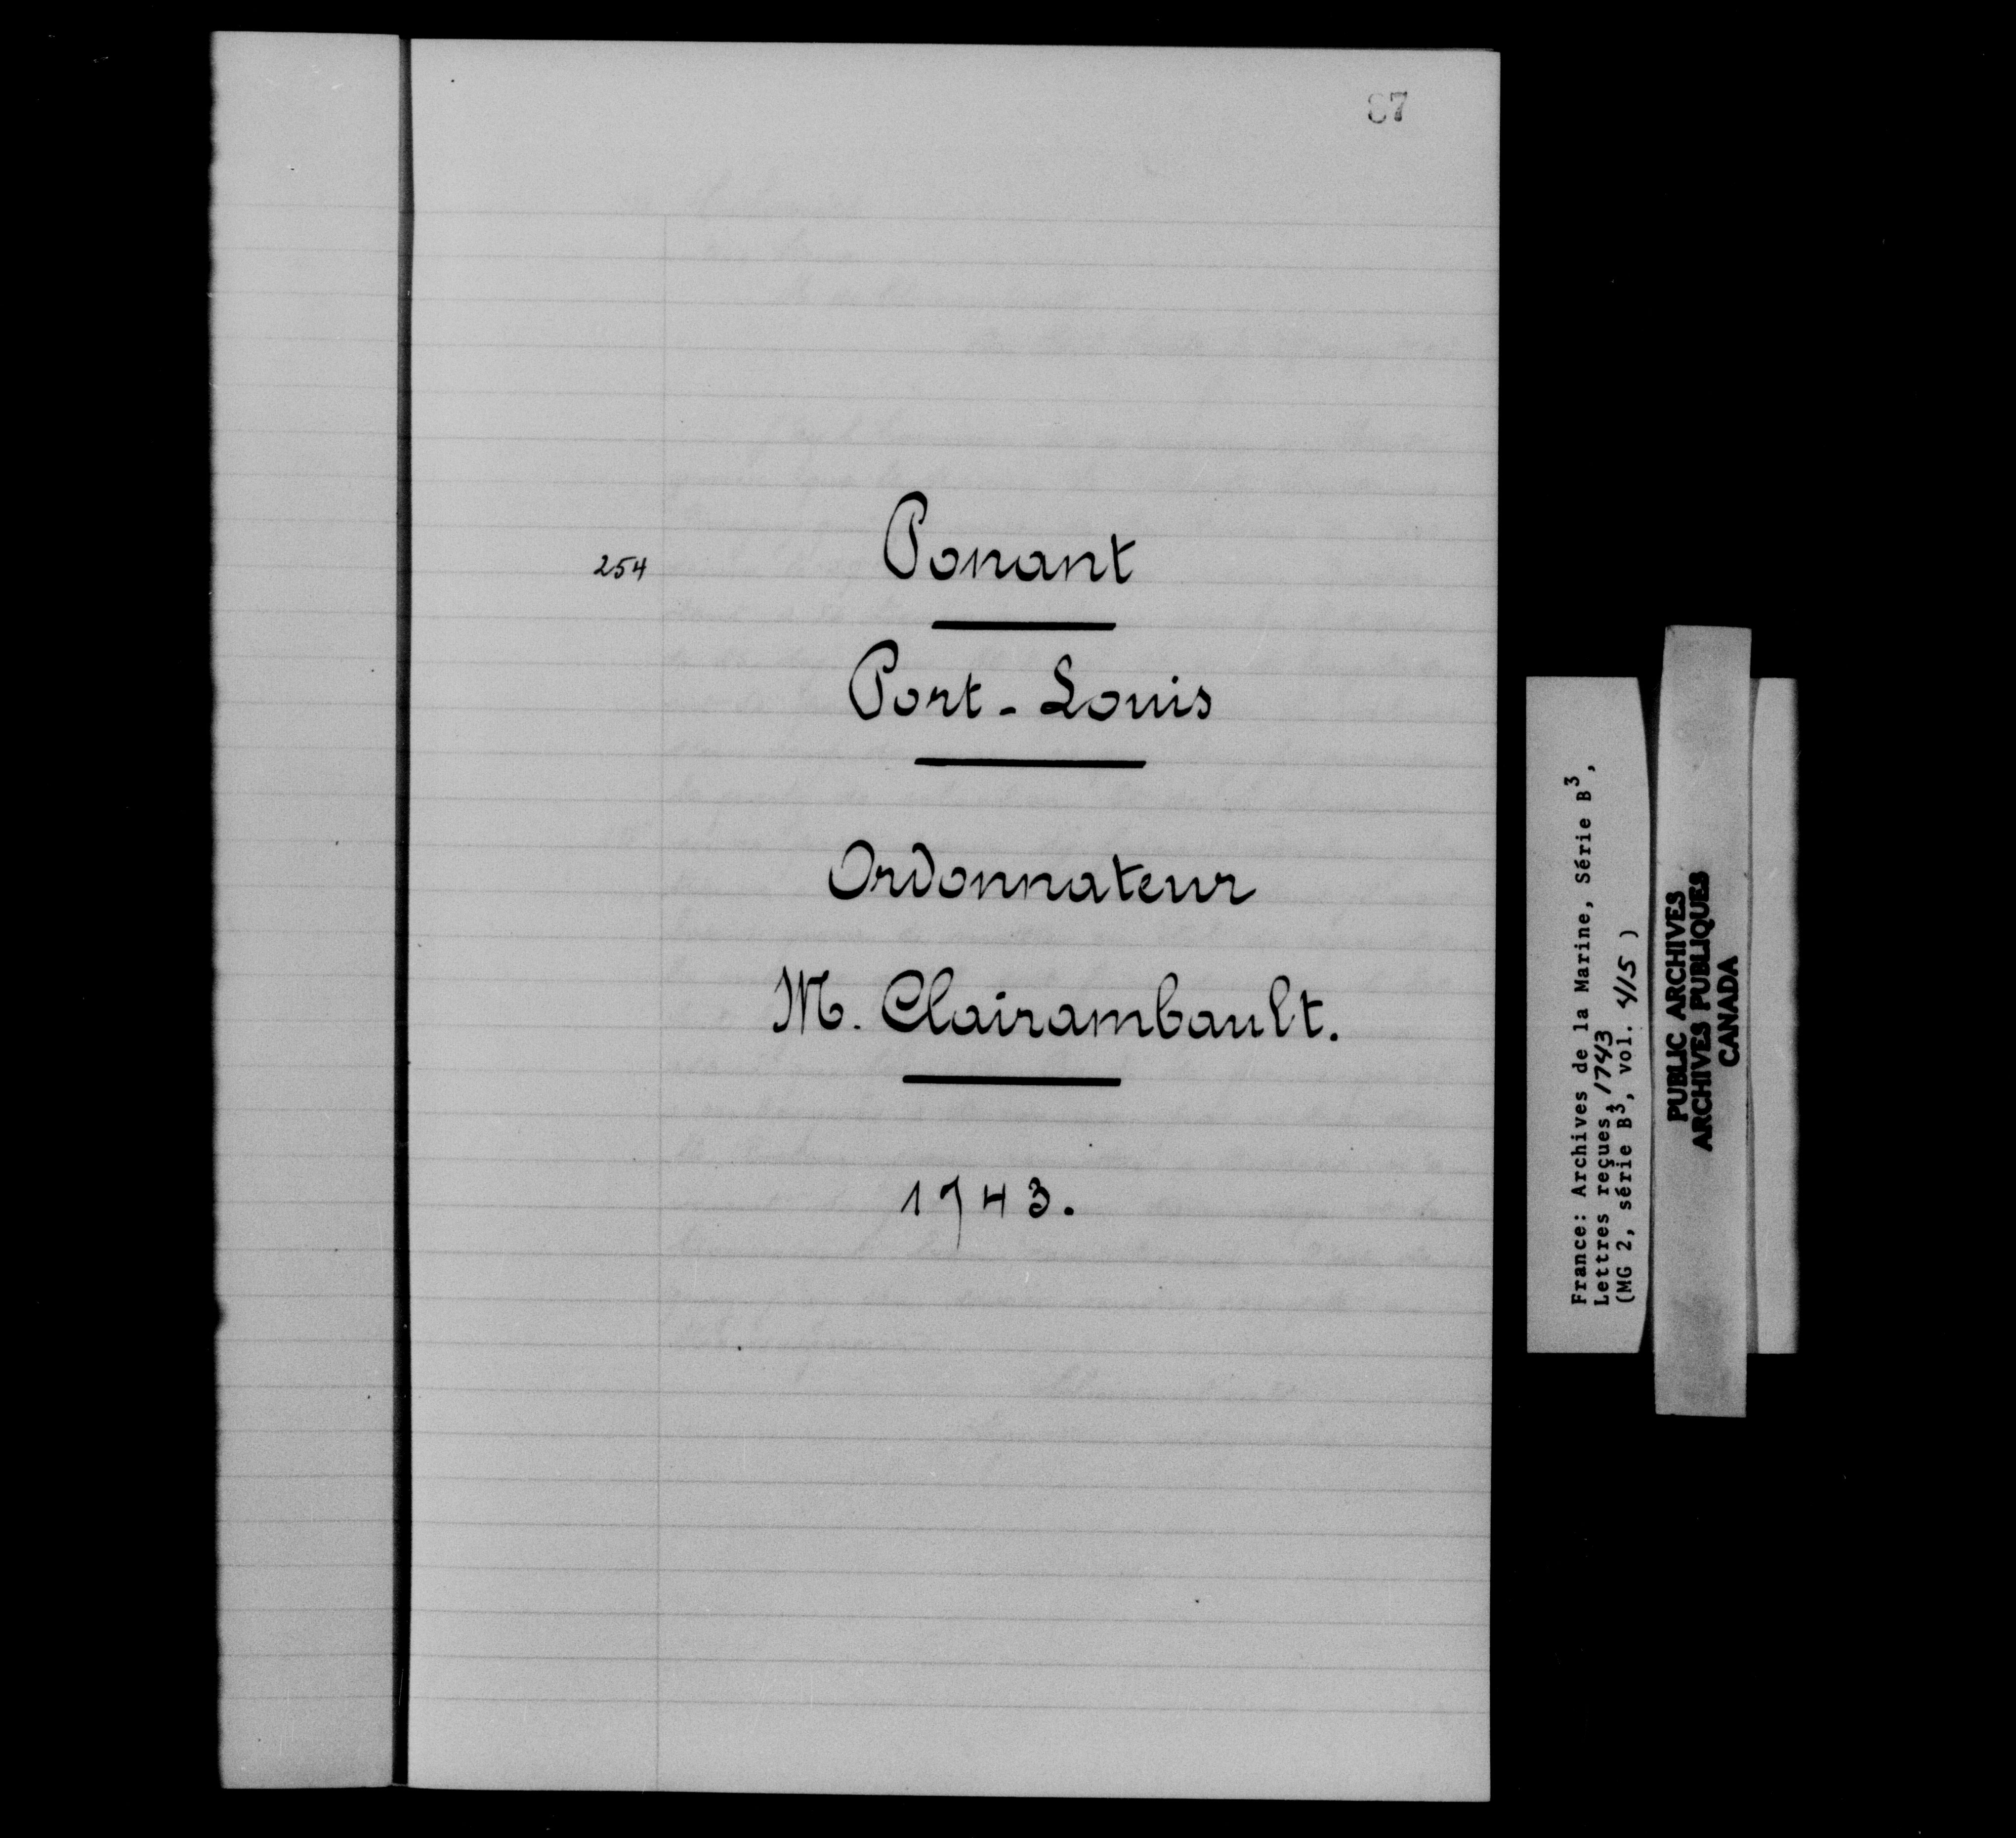 87
254
Ponant
Port-Louis
Ordonnateur
M. Clairambault.
1743.
France: Archives de la Marine, Série B3,
Lettres reçues, 1743
(MG 2, série B3, vol. 415)
PUBLIC ARCHIVES
ARCHIVES PUBLIQUES
CANADA